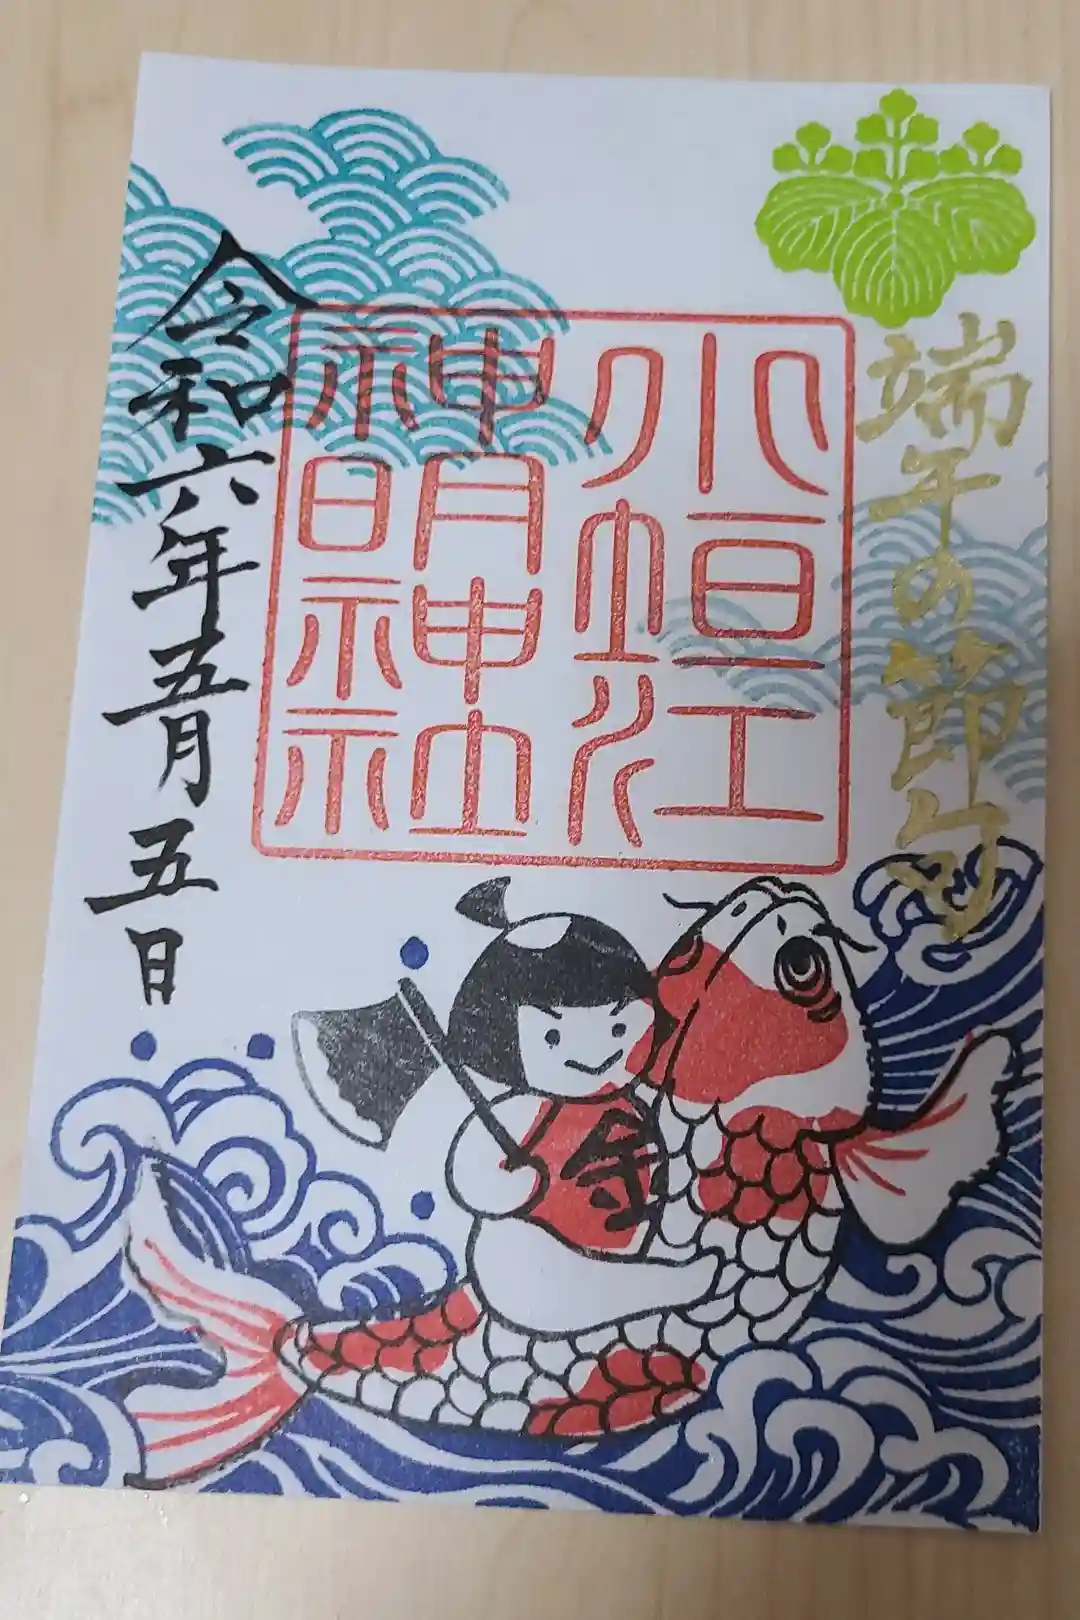 端午の節句
小垣江
神明神社
令和六年五月五日
金